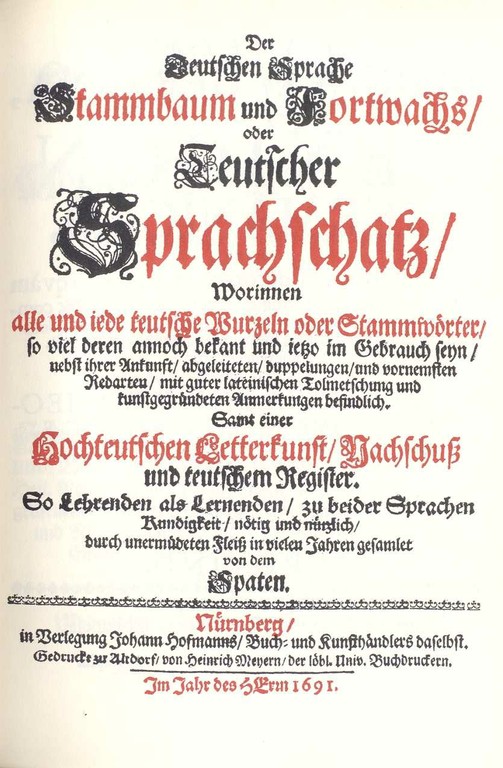 Der
Teutschen Sprache
Stammbaum und Fortwachs/
oder
Teutscher
Sprachschatz/
Worinnen
alle und iede teutsche Wurzeln oder Stammwörter/
so viel deren annoch bekant und ietzo im Gebrauch seyn/
nebst ihrer Ankunft/ abgeleiteten/ duppelungen/ und vornemsten
Redarten/ mit guter lateinischen Tolmetschung und
kunstgegründeten Anmerkungen befindlich.
Samt einer
Hochteutschen Letterkunst/ Nachschuß
und teutschem Register.
So Lehrenden als Lernenden/ zu beider Sprachen
Kundigkeit/ nötig und nützlich/
durch unermüdeten Fleiß in vielen Jahren gesamlet
von dem
Spaten.
Nürnberg/
in Verlegung Johann Hofmanns/ Buch- und Kunsthändlers daselbst.
Gedruckt zu Altdorf/ von Heinrich Meyern/ der löbl. Univ. Buchdruckern.
Im Jahr des HErrn 1691.